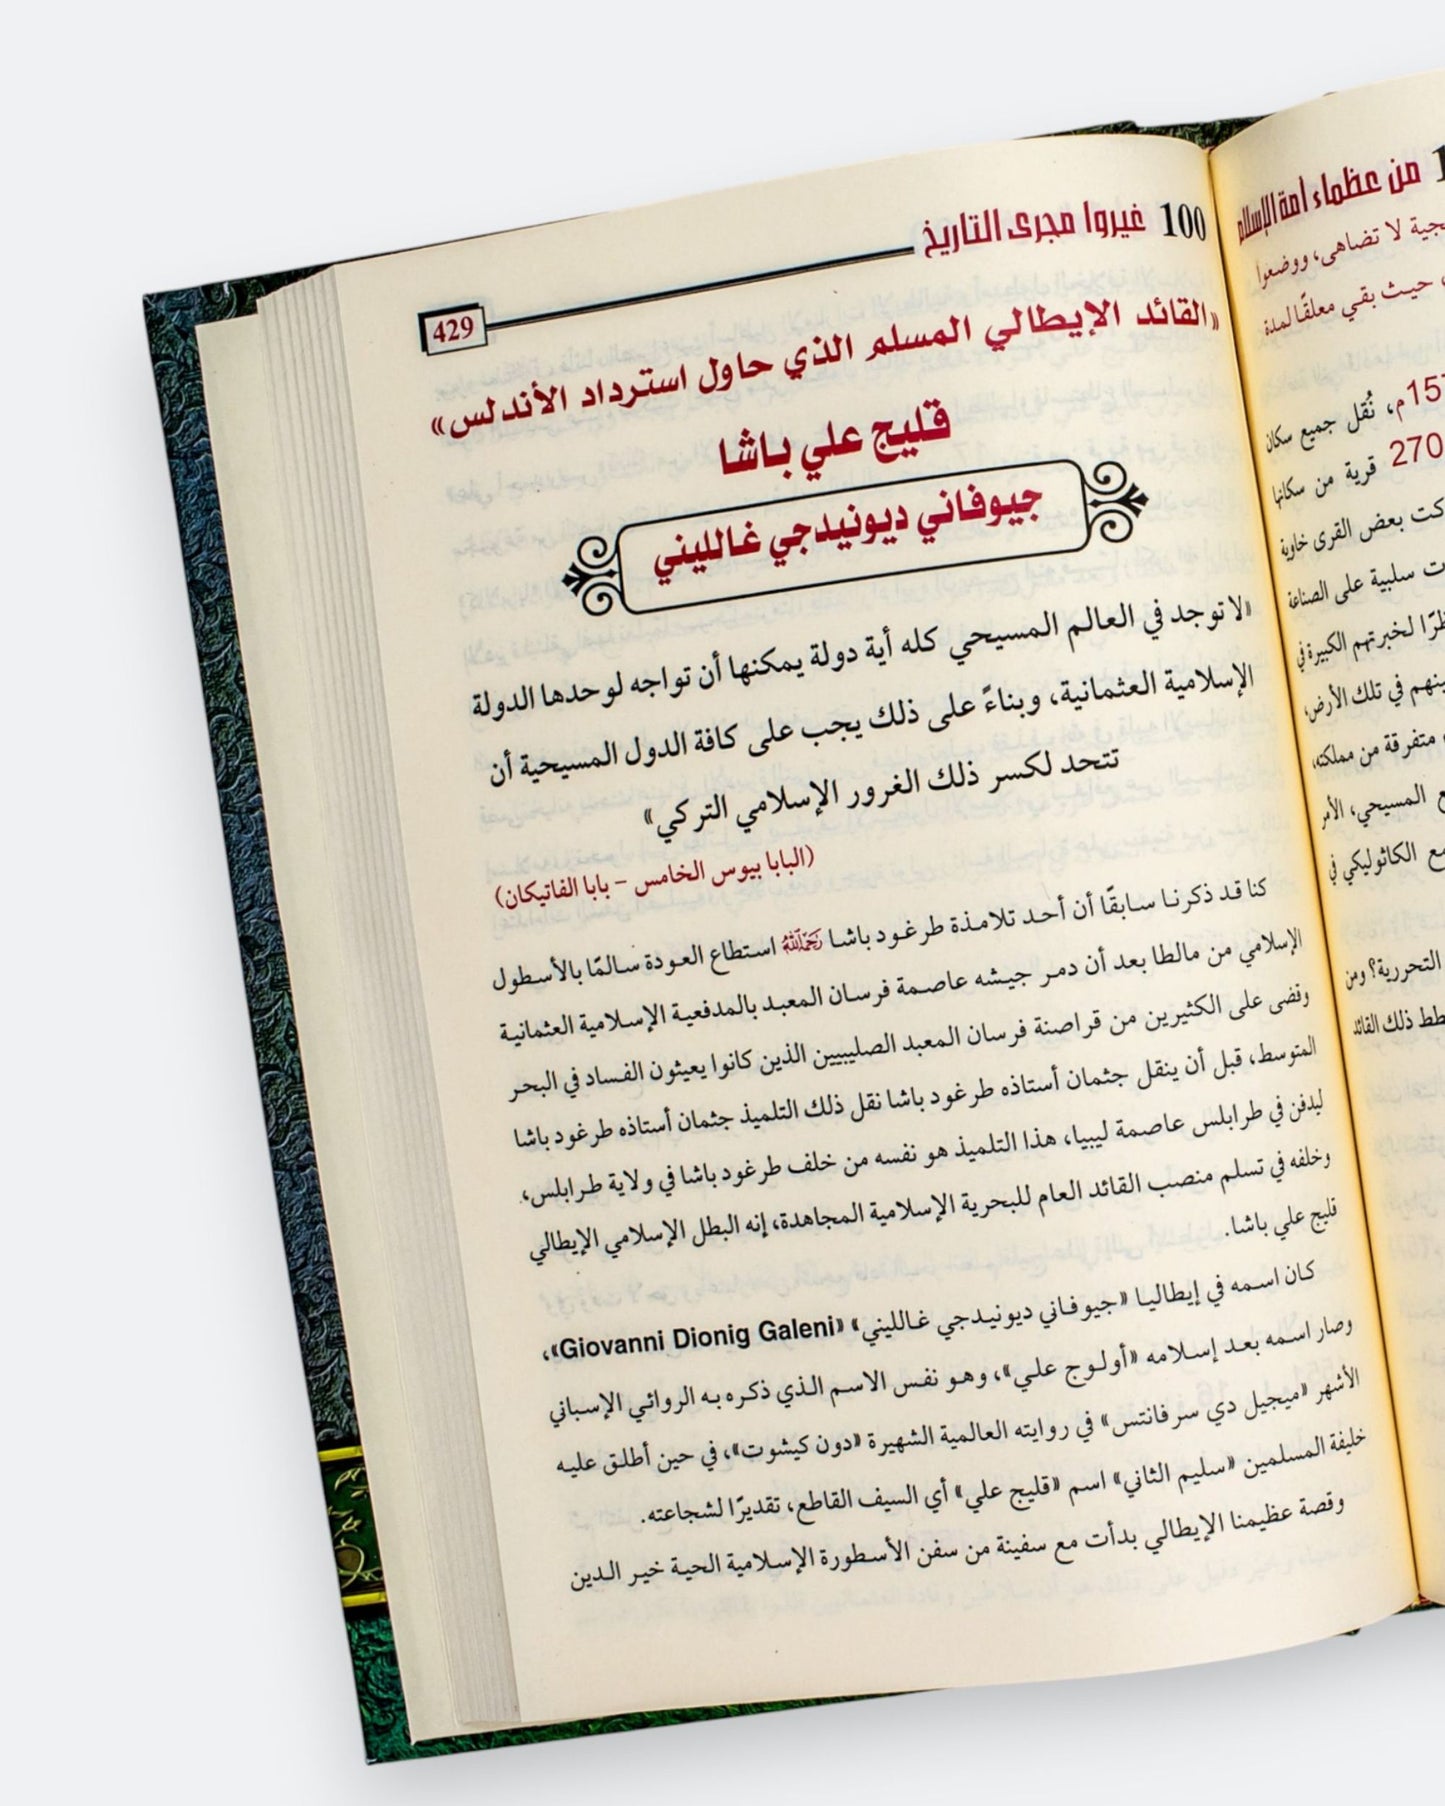 100 غيروا مجرى التاريخ
429
«القائد الإيطالي المسلم الذي حاول استرداد الأندلس»
قليج علي باشا
جيوفاني ديونيدجي غالليني
«لا توجد في العالم المسيحي كله أية دولة يمكنها أن تواجه لوحدها الدولة
الإسلامية العثمانية، وبناءً على ذلك يجب على كافة الدول المسيحية أن
تتحد لكسر ذلك الغرور الإسلامي التركي»
(البابا بيوس الخامس – بابا الفاتيكان)
كنا قد ذكرنا سابقًا أن أحد تلامذة طرغود باشا رَحِمَهُ اللَّهُ استطاع العودة سالمًا بالأسطول
الإسلامي من مالطا بعد أن دمر جيشه عاصمة فرسان المعبد بالمدفعية الإسلامية العثمانية
وقضى على الكثيرين من قراصنة فرسان المعبد الصليبيين الذين كانوا يعيثون الفساد في البحر
المتوسط، قبل أن ينقل جثمان أستاذه طرغود باشا نقل ذلك التلميذ جثمان أستاذه طرغود باشا
ليدفن في طرابلس عاصمة ليبيا، هذا التلميذ هو نفسه من خلف طرغود باشا في ولاية طرابلس،
وخلفه في تسلم منصب القائد العام للبحرية الإسلامية المجاهدة، إنه البطل الإسلامي الإيطالي
قليج علي باشا.
كان اسمه في إيطاليا «جيوفاني ديونيدجي غالليني» «Giovanni Dionig Galeni»،
وصار اسمه بعد إسلامه «أولوج علي»، وهو نفس الاسم الذي ذكره به الروائي الإسباني
الأشهر «ميجيل دي سرفانتس» في روايته العالمية الشهيرة «دون كيشوت»، في حين أطلق عليه
خليفة المسلمين «سليم الثاني» اسم «قليج علي» أي السيف القاطع، تقديرًا لشجاعته.
وقصة عظيمنا الإيطالي بدأت مع سفينة من سفن الأسطورة الإسلامية الحية خير الدين
من عظماء أمة الإسلام
لا تضاهى، ووضعوا
حيث بقي معلقًا لمدة
م، نُقل جميع سكان
270 قرية من سكانها
بعض القرى خاوية
سلبية على الصناعة
لخبرتهم الكبيرة في
في تلك الأرض،
متفرقة من مملكته،
المسيحي، الأمر
الكاثوليكي في
التحررية؟ ومن
ذلك القائد